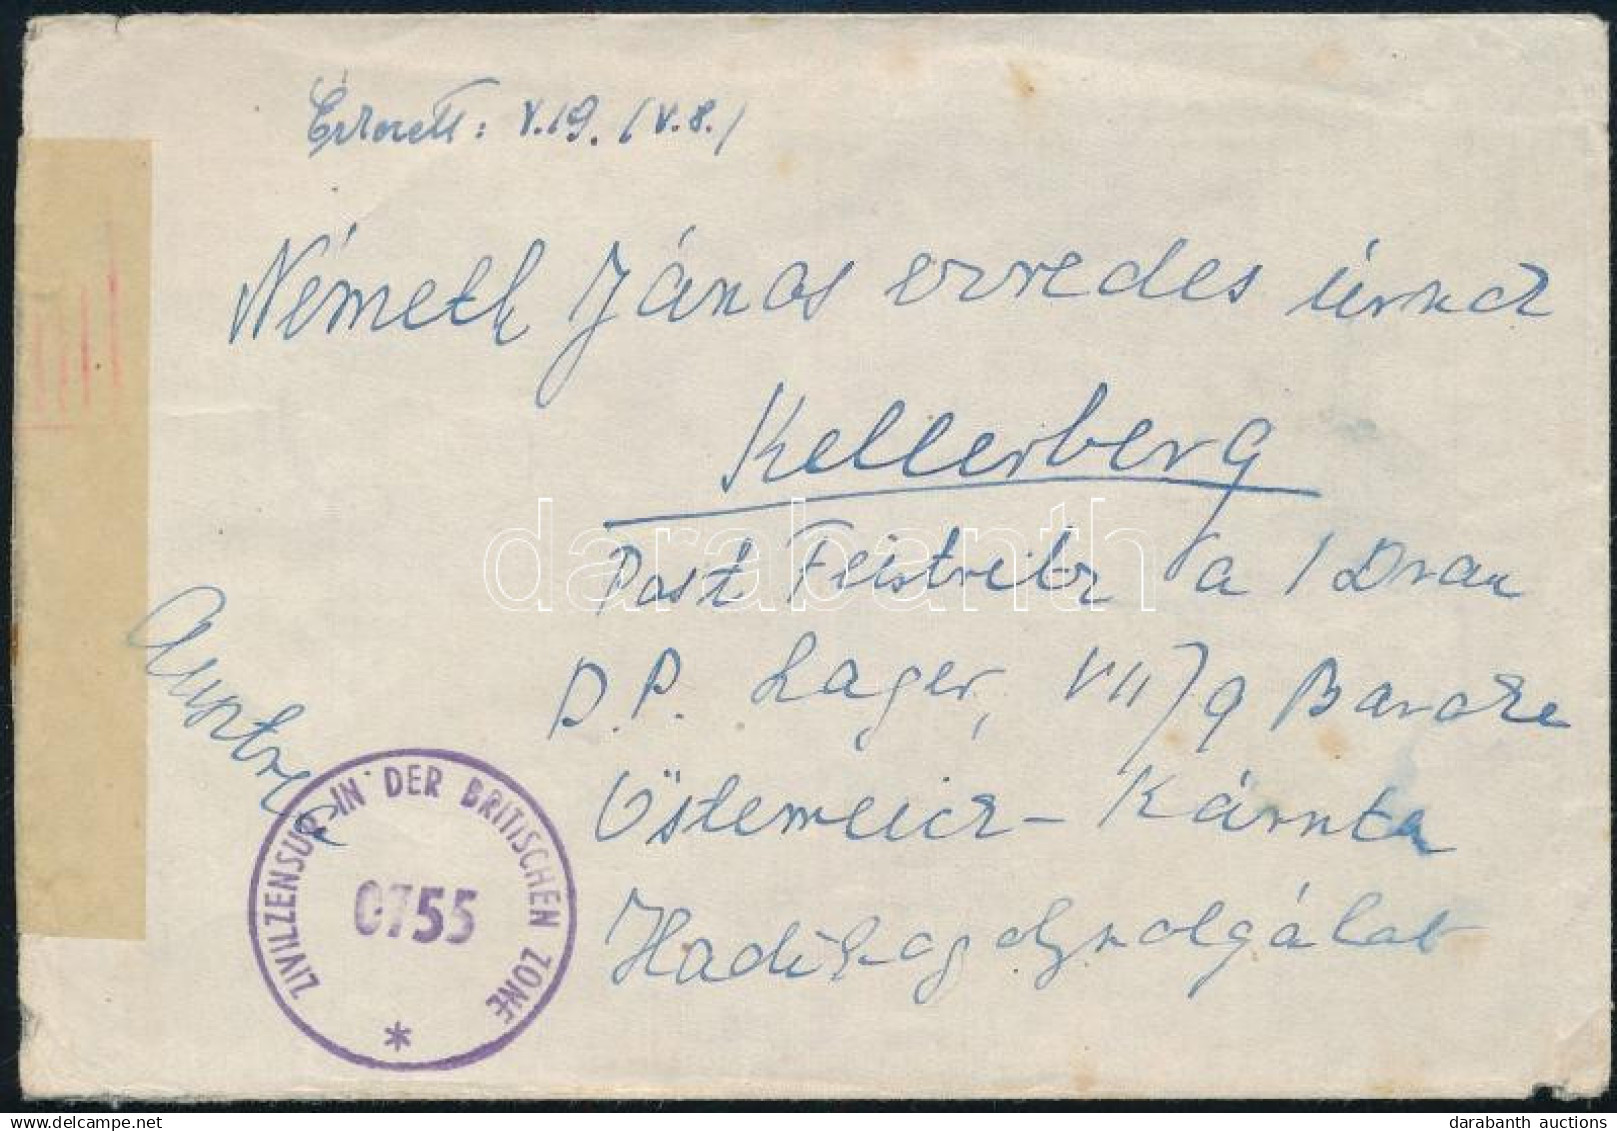 Érkezett: V.19. (V.8.)
Németh János ezredes úrnak
Kellerberg
Post Feistritz a/Drau
D.P. Lager, VII/9 Baracke
Österreich - Kärnten
Hadifogolyszolgálat
Ausztria
ZIVILZENSUR IN DER BRITISCHEN ZONE
0755
*
darabanth
darabanth auctions
www.delcampe.net